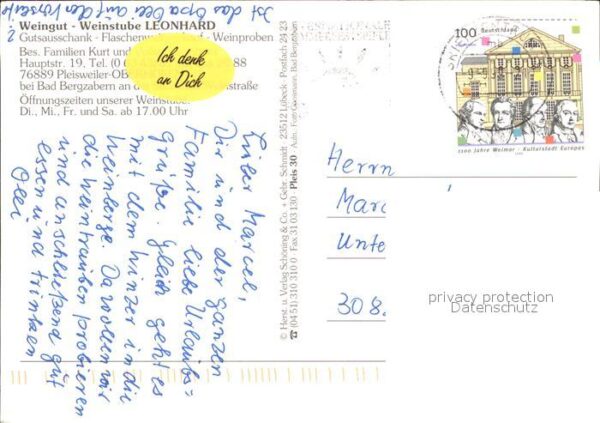 Ist das Opa Olei auf der Vorseite
?
Weingut - Weinstube LEONHARD
Gutsausschank - Flaschenweinverkauf - Weinproben
Bes. Familien Kurt und
Hauptstr. 19, Tel. (0 88
76889 Pleisweiler-OB
bei Bad Bergzabern an straße
Öffnungszeiten unserer Weinstube:
Di., Mi., Fr. und Sa. ab 17.00 Uhr
Ich denk
an Dich
Lieber Marcel,
Dir und der ganzen
Familie liebe Urlaubs=
grüße. Gleich geht es
mit dem Winzer in die
Weinberge. Da wollen wir
die Weintrauben probieren
und anschließend gut
essen und trinken
Olei
© Herst. u. Verlag Schöning & Co. + Gebr. Schmidt · 23512 Lübeck · Postfach 24 23
☎ (04 51) 310 310 0 · Fax 31 03 130 - Pleis 30 - Bad Bergzabern
100 Deutschland
1100 Jahre Weimar - Kulturstadt Europas
Herrn
Marc
Unte
308
privacy protection
Datenschutz